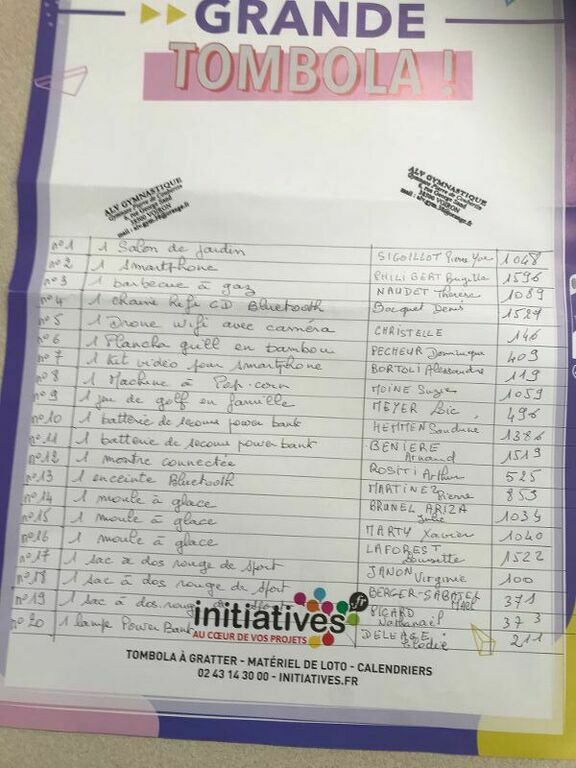 GRANDE
TOMBOLA !
ALV GYMNASTIQUE
Gymnase Pierre de Coubertin
6, rue George Sand
38500 VOIRON
ALV GYMNASTIQUE
Gymnase Pierre de Coubertin
6, rue George Sand
38500 VOIRON
n°1 1 Salon de jardin SIGOILLOT Pierre Yve 1048
n°2 1 Smartphone PHILIBERT Brigitte 1596
n°3 1 barbecue à gaz NAUDET Therese 1089
n°4 1 chaine Hifi CD Bluetooth Bocquet Denis 1527
n°5 1 Drone wifi avec caméra CHRISTELLE 146
n°6 1 Plancha grill en bambou PECHEUR Dominique 409
n°7 1 Kit vidéo pour smartphone BORTOLI Alessandra 119
n°8 1 Machine à Pop-corn MOINE Suzie 1059
n°9 1 jeu de golf en famille MEYER Loic 496
n°10 1 batterie de secours power bank HEMMEN Sandrine 1386
n°11 1 batterie de secours power bank BENIERE Arnaud 1519
n°12 1 montre connectée ROSITI Arthur 525
n°13 1 enceinte Bluetooth MARTINEZ Pierre 859
n°14 1 moule à glace BRUNEL ARIZA Julie 1034
n°15 1 moule à glace MARTY Xavier 1040
n°16 1 moule à glace LAFOREST 1522
n°17 1 sac à dos rouge de sport JANON Virginie 100
n°18 1 sac à dos rouge de sport BERGER-SABATEL 371
n°19 1 sac à dos rouge PICARD Nathanaël 373
n°20 1 lampe Power Bank DELEAGE Elodie 211
initiatives.fr
AU CŒUR DE VOS PROJETS
TOMBOLA À GRATTER - MATÉRIEL DE LOTO - CALENDRIERS
02 43 14 30 00 - INITIATIVES.FR